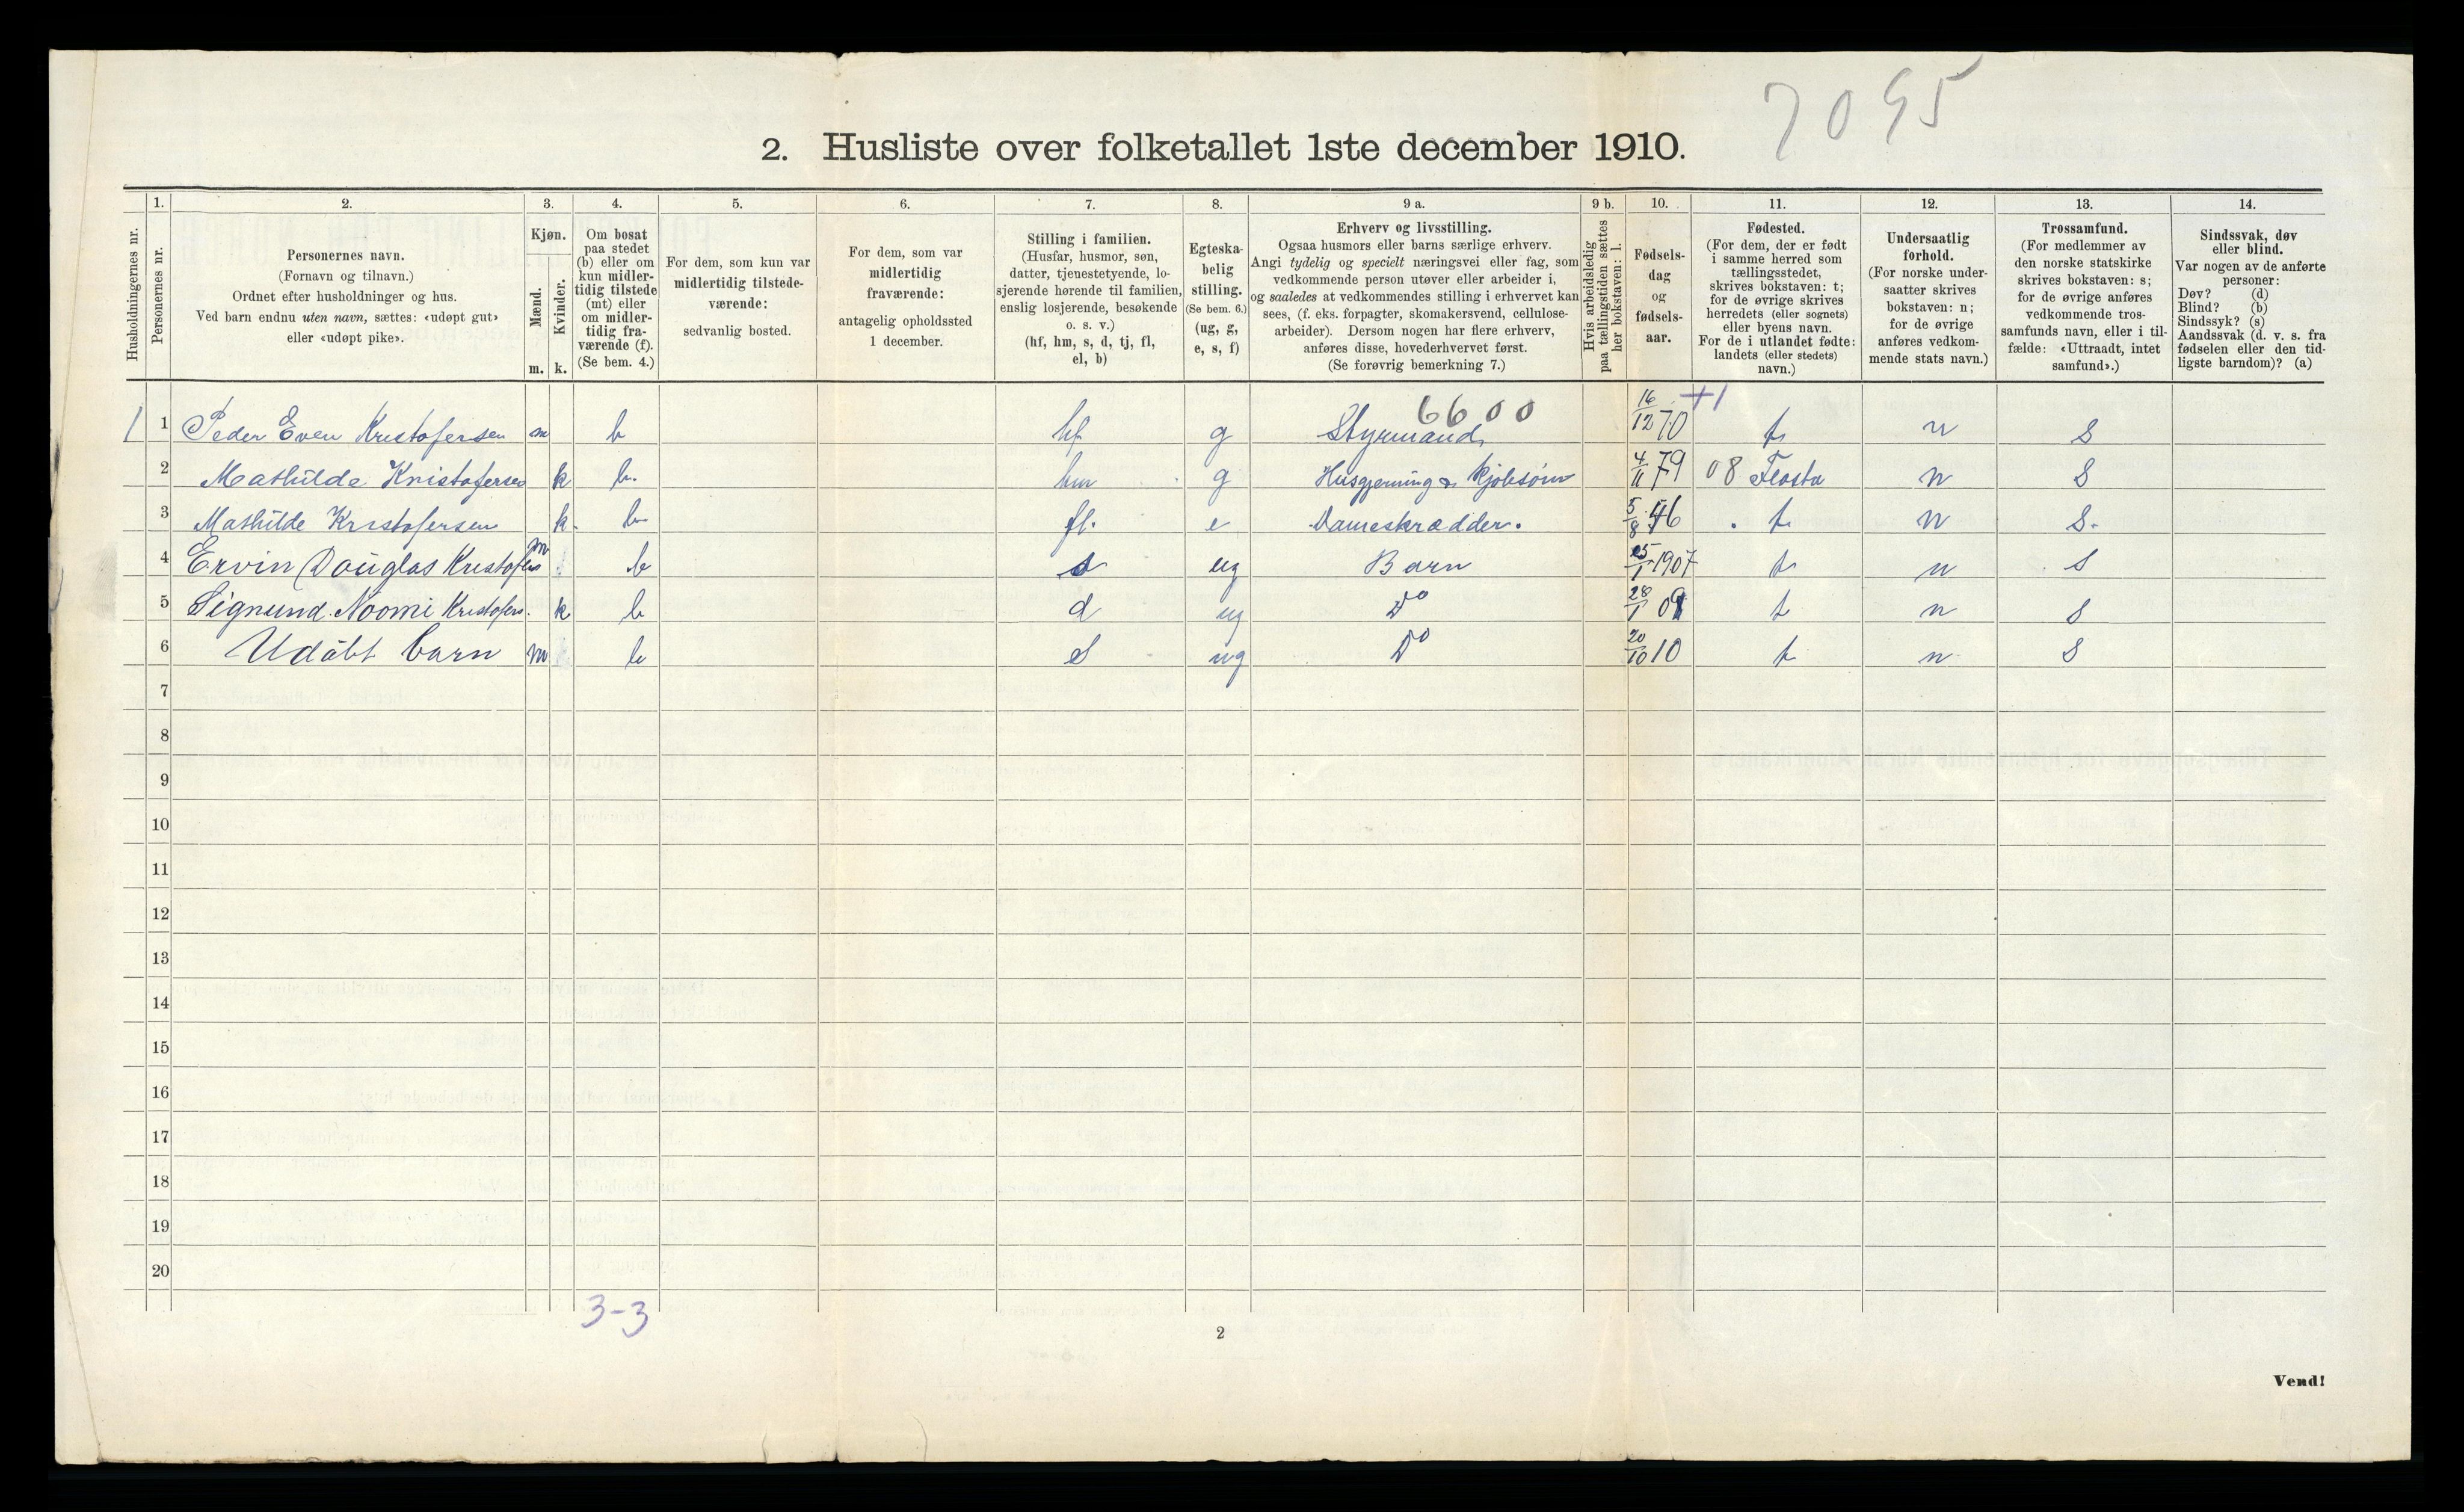 7095
2. Husliste over folketallet 1ste december 1910.
Husholdningernes nr.
1.
Personernes nr.
2.
Personernes navn.
(Fornavn og tilnavn.)
Ordnet efter husholdninger og hus.
Ved barn endnu uten navn, sættes: «udøpt gut»
eller «udøpt pike».
3.
Kjøn.
Mænd.
m.
Kvinder.
k.
4.
Om bosat
paa stedet
(b) eller om
kun midler-
tidig tilstede
(mt) eller
om midler-
tidig fra-
værende (f).
(Se bem. 4.)
5.
For dem, som kun var
midlertidig tilstede-
værende:
sedvanlig bosted.
6.
For dem, som var
midlertidig
fraværende:
antagelig opholdssted
1 december.
7.
Stilling i familien.
(Husfar, husmor, søn,
datter, tjenestetyende, lo-
sjerende hørende til familien,
enslig losjerende, besøkende
o. s. v.)
(hf, hm, s, d, tj, fl,
el, b)
8.
Egteska-
belig
stilling.
(Se bem. 6.)
(ug, g,
e, s, f)
9 a.
Erhverv og livsstilling.
Ogsaa husmors eller barns særlige erhverv.
Angi tydelig og specielt næringsvei eller fag, som
vedkommende person utøver eller arbeider i,
og saaledes at vedkommendes stilling i erhvervet kan
sees, (f. eks. forpagter, skomakersvend, cellulose-
arbeider). Dersom nogen har flere erhverv,
anføres disse, hovederhvervet først.
(Se forøvrig bemerkning 7.)
9 b.
Hvis arbeidsledig
paa tællingstiden sættes
her bokstaven: l.
10.
Fødsels-
dag
og
fødsels-
aar.
11.
Fødested.
(For dem, der er født
i samme herred som
tællingsstedet,
skrives bokstaven: t;
for de øvrige skrives
herredets (eller sognets)
eller byens navn.
For de i utlandet fødte:
landets (eller stedets)
navn.)
12.
Undersaatlig
forhold.
(For norske under-
saatter skrives
bokstaven: n;
for de øvrige
anføres vedkom-
mende stats navn.)
13.
Trossamfund.
(For medlemmer av
den norske statskirke
skrives bokstaven: s;
for de øvrige anføres
vedkommende tros-
samfunds navn, eller i til-
fælde: «Uttraadt, intet
samfund».)
14.
Sindssvak, døv
eller blind.
Var nogen av de anførte
personer:
Døv? (d)
Blind? (b)
Sindssyk? (s)
Aandssvak (d. v. s. fra
fødselen eller den tid-
ligste barndom)? (a)
6600 +1
1 1 Peder Even Kristofersen m b hf g Styrmand 16/12 70 t n S
2 Mathilde Kristofersen k b. hm g Husgjerning & 4/11 79 08 Flosta n S
3 Mathilde Kristofersen k. b fl. e Dameskrædder. 5/8 46 t n S.
4 Ervin Douglas Kristofers m b s ug Barn 25/1 1907 t n S
5 Signund Noomi Kristofers. k b d ug Do 28/1 09 t n S
6 Udøbt barn m b S ug Do 20/10 10 t n S
7
8
9
10
11
12
13
14
15
16
17
18
19
20
3-3
2
Vend!